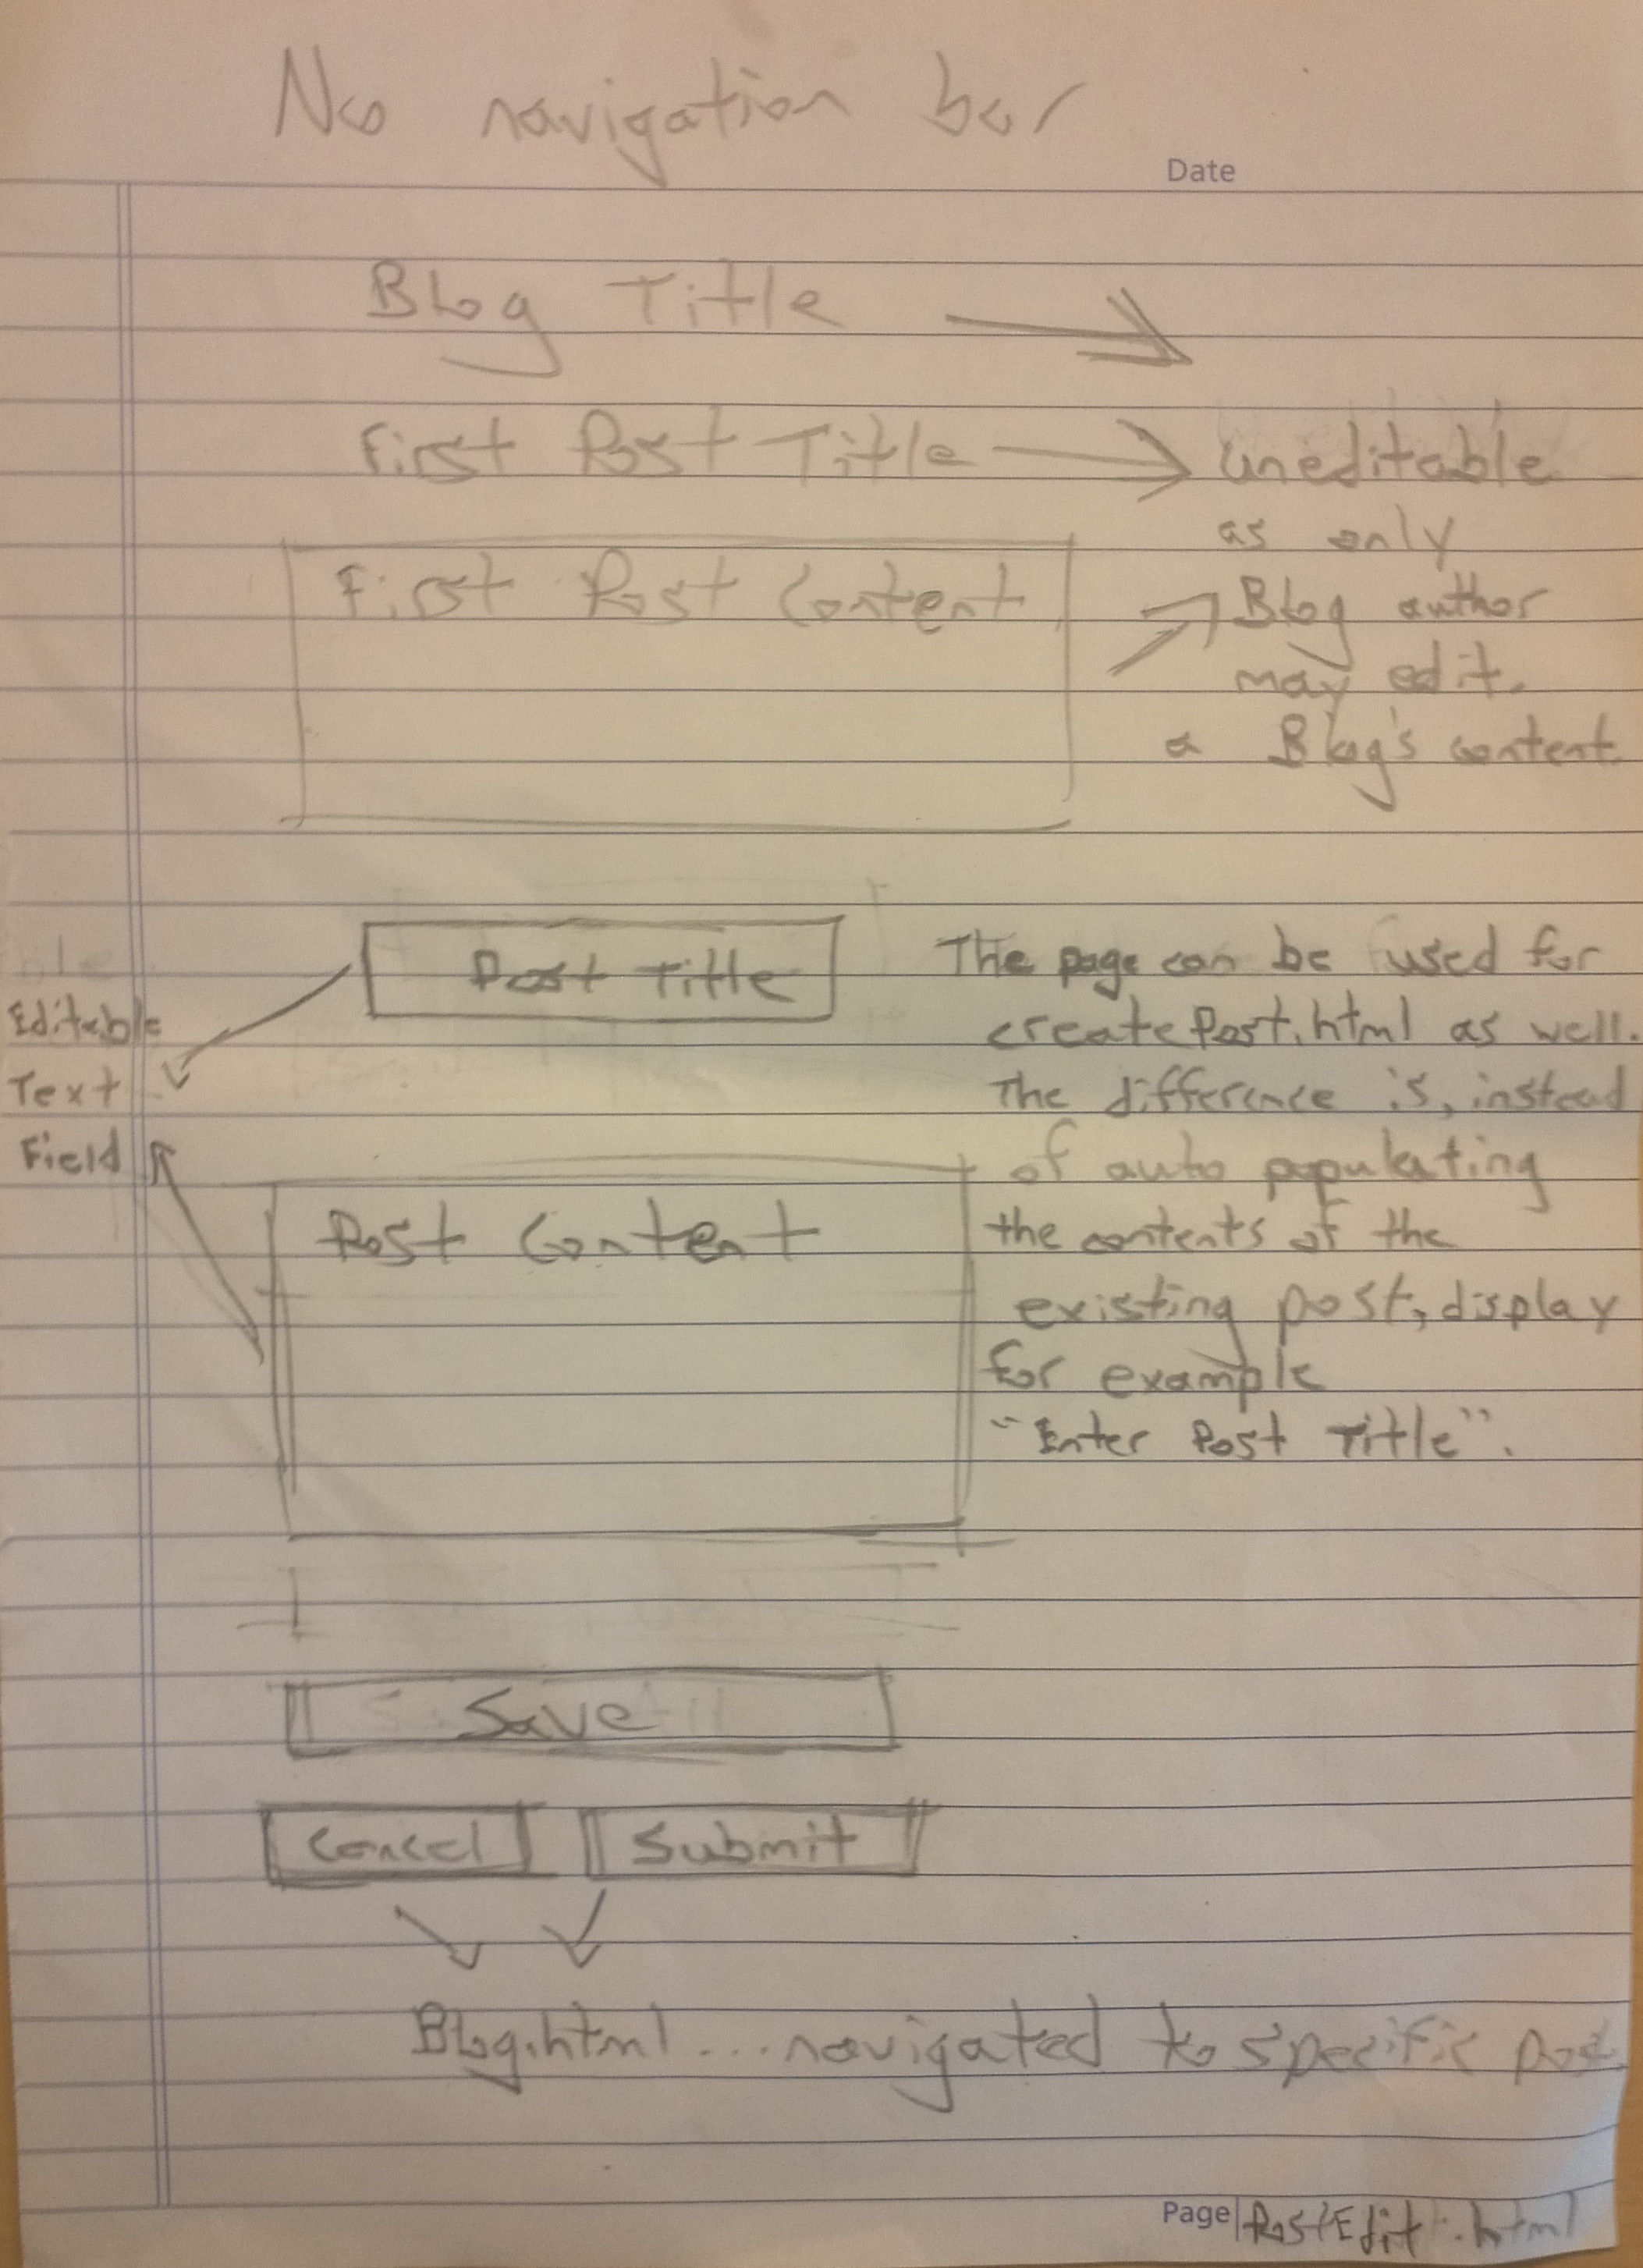 No navigation bar
Date
Blog Title
First Post Title
uneditable
as only
Blog author
may edit.
a Blog's content
First Post Content
Post Title
Editable
Text
Field
The page can be used for
createPost.html as well.
The difference is, instead
of auto populating
the contents of the
existing post, display
for example
"Enter Post Title".
Post Content
Save
Cancel
Submit
Blog.html ... navigated to specific post
Page PostEdit.html